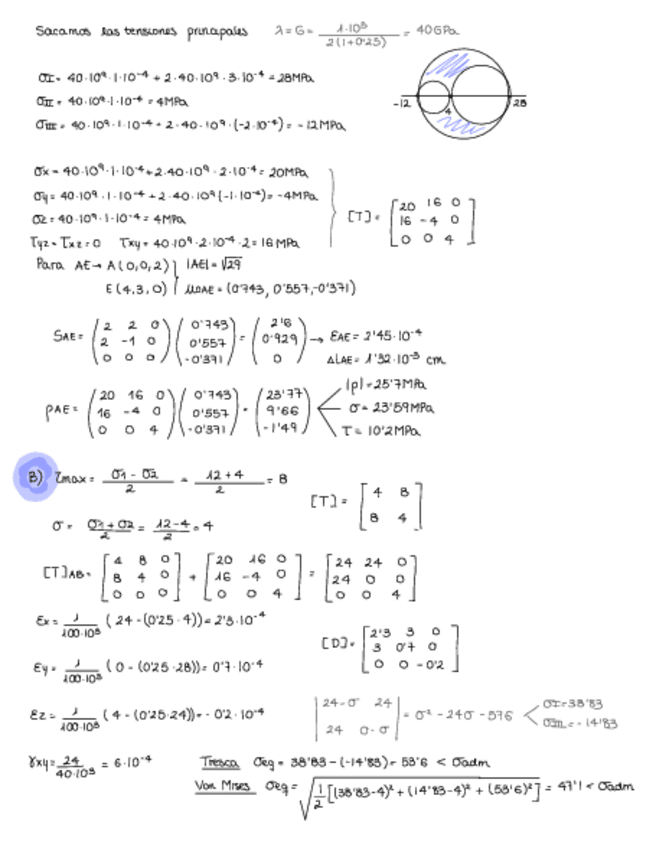 Sacamos las tensiones principales λ=G= 1·10⁵ / 2(1+0'25) = 40GPa
σI= 40·10⁹·1·10⁻⁴ + 2·40·10⁹·3·10⁻⁴ = 28MPa
σII= 40·10⁹·1·10⁻⁴ = 4MPa
σIII= 40·10⁹·1·10⁻⁴ + 2·40·10⁹·(-2·10⁻⁴) = -12MPa
-12 4 28
σx= 40·10⁹·1·10⁻⁴ + 2·40·10⁹·2·10⁻⁴ = 20MPa
σy= 40·10⁹·1·10⁻⁴ + 2·40·10⁹(-1·10⁻⁴) = -4MPa
σz= 40·10⁹·1·10⁻⁴ = 4MPa
[T]= [20 16 0
16 -4 0
0 0 4]
τyz= τxz=0 τxy= 40·10⁹·2·10⁻⁴·2= 16MPa
Para AE→ A(0,0,2) |AE|= √29
E(4,3,0) μAE= (0'743, 0'557,-0'371)
SAE= (2 2 0
2 -1 0
0 0 0) (0'743
0'557
-0'371) = (2'6
0'929
0) → εAE= 2'45·10⁻⁴
ΔLAE= 1'32·10⁻³ cm
ρAE= (20 16 0
16 -4 0
0 0 4) (0'743
0'557
-0'371) = (23'77
9'66
-1'49)
|p|= 25'7MPa
σ= 23'59MPa
τ= 10'2MPa
B) τmax= σ1-σ2 / 2 = 12+4 / 2 = 8
[T]= [4 8
8 4]
σ= σ1+σ2 / 2 = 12-4 / 2 = 4
[T]AB= [4 8 0
8 4 0
0 0 0] + [20 16 0
16 -4 0
0 0 4] = [24 24 0
24 0 0
0 0 4]
εx= 1 / 100·10³ (24-(0'25·4))= 2'3·10⁻⁴
[D]= [2'3 3 0
3 0'7 0
0 0 -0'2]
εy= 1 / 100·10³ (0-(0'25·28))= 0'7·10⁻⁴
εz= 1 / 100·10³ (4-(0'25·24))= -0'2·10⁻⁴
|24-σ 24
24 0-σ| = σ²-24σ-576
σI=38'83
σIII=-14'83
γxy= 24 / 40·10³ = 6·10⁻⁴
Tresca σeq= 38'83-(-14'83)= 53'6 < σadm
Von Mises σeq= √1/2[(38'83-4)²+(14'83-4)²+(53'6)²] = 47'1 < σadm